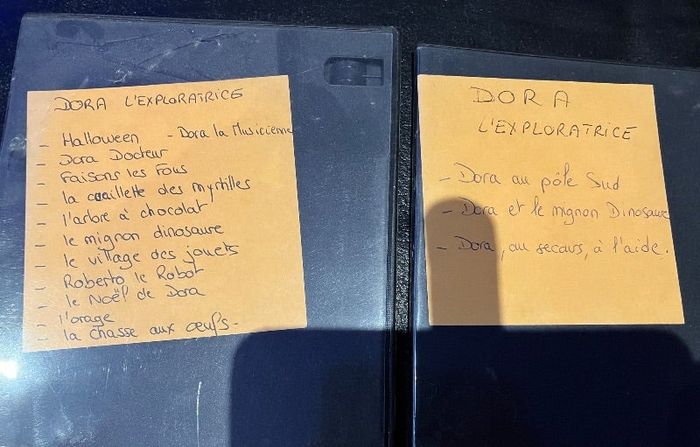 DORA L'EXPLORATRICE
- Halloween - Dora la Musicienne
- Dora Docteur
- Faisons les Fous
- la cueillette des myrtilles
- l'arbre à chocolat
- le mignon dinosaure
- le village des jouets
- Roberto le Robot
- le Noël de Dora
- l'orage
- la chasse aux œufs.
DORA
L'EXPLORATRICE
- Dora au pôle Sud
- Dora et le mignon Dinosaure
- Dora, au secours, à l'aide.